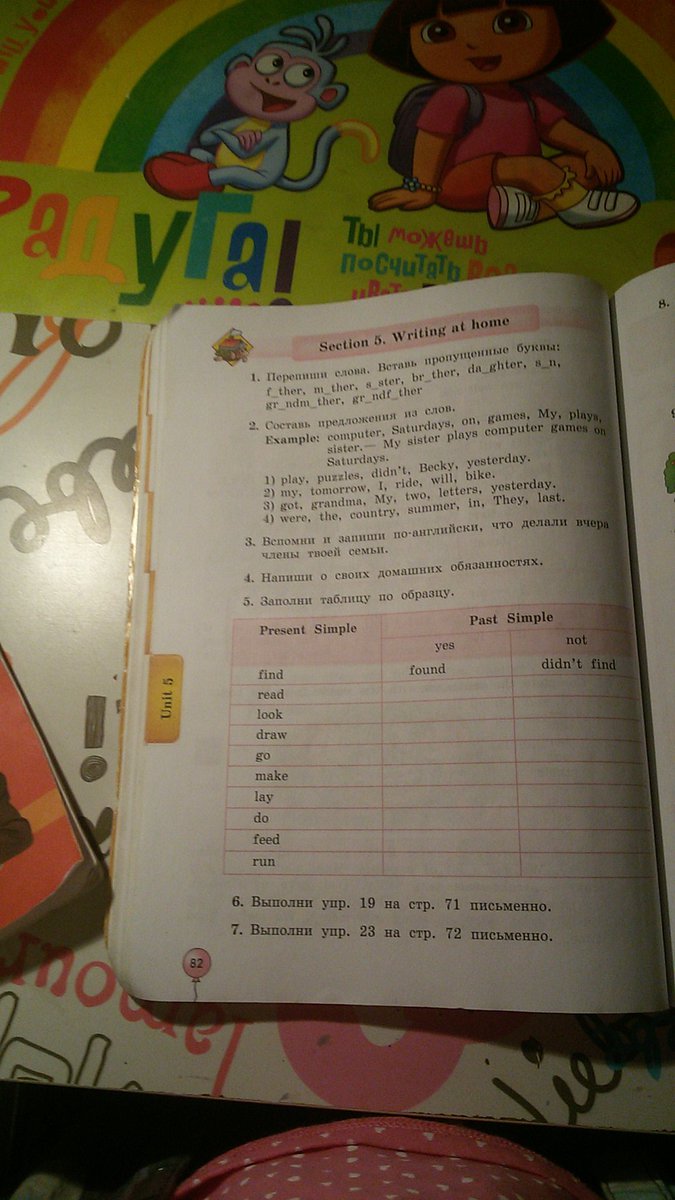 Радуга!
Ты можешь
посчитать все
Section 5. Writing at home
1. Перепиши слова. Вставь пропущенные буквы:
f_ther, m_ther, s_ster, br_ther, da_ghter, s_n,
gr_ndm_ther, gr_ndf_ther
2. Составь предложения из слов.
Example: computer, Saturdays, on, games, My, plays,
sister.— My sister plays computer games on
Saturdays.
1) play, puzzles, didn't, Becky, yesterday.
2) my, tomorrow, I, ride, will, bike.
3) got, grandma, My, two, letters, yesterday.
4) were, the, country, summer, in, They, last.
3. Вспомни и запиши по-английски, что делали вчера
члены твоей семьи.
4. Напиши о своих домашних обязанностях.
5. Заполни таблицу по образцу.
Present Simple Past Simple
yes not
find found didn't find
read
look
draw
go
make
lay
do
feed
run
6. Выполни упр. 19 на стр. 71 письменно.
7. Выполни упр. 23 на стр. 72 письменно.
Unit 5
82
8.